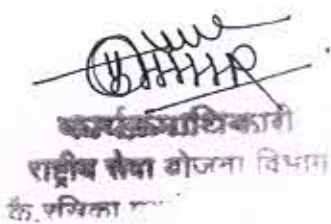 कार्यक्रमाधिकारी
राष्ट्रीय सेवा योजना विभाग
कै. रसिका